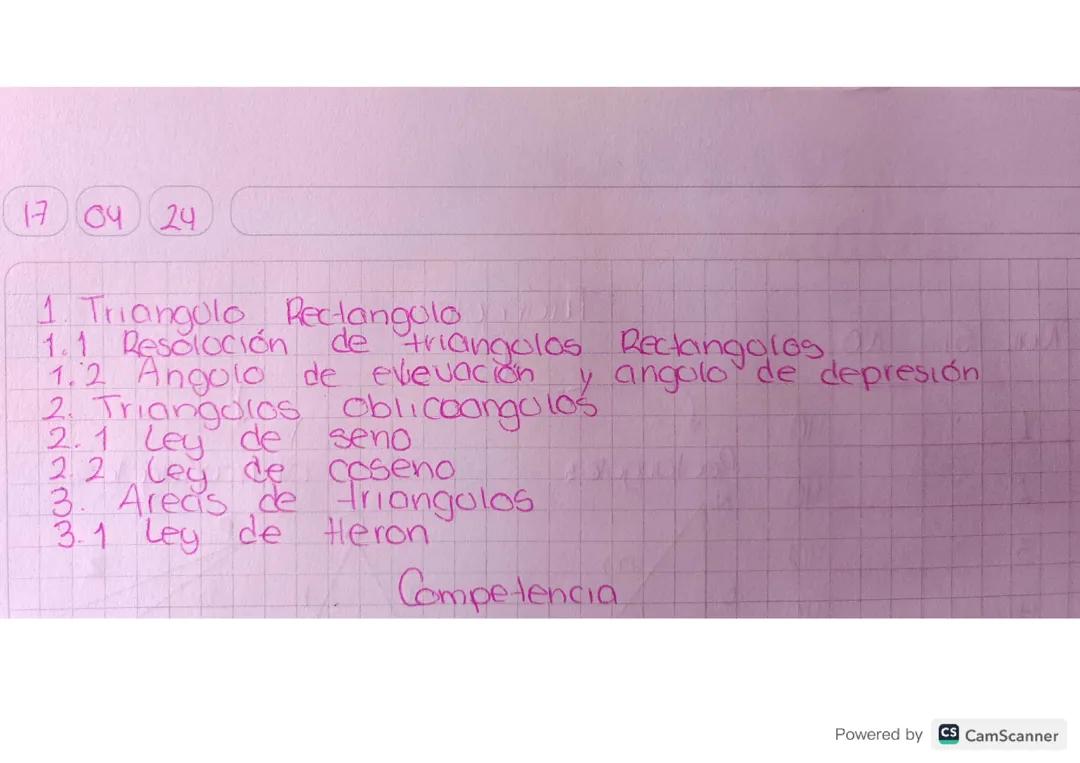 17 04 24
1. Triangulo Rectangulo
1.1 Resolución de triangulos Rectangulos
1.2 Angulo de elevación y angulo de depresión
2. Triangulos oblicoangulos
2.1 Ley de seno
2.2 Ley de coseno
3. Areas de triangulos
3.1 Ley de Heron
Competencia
Powered by CS CamScanner